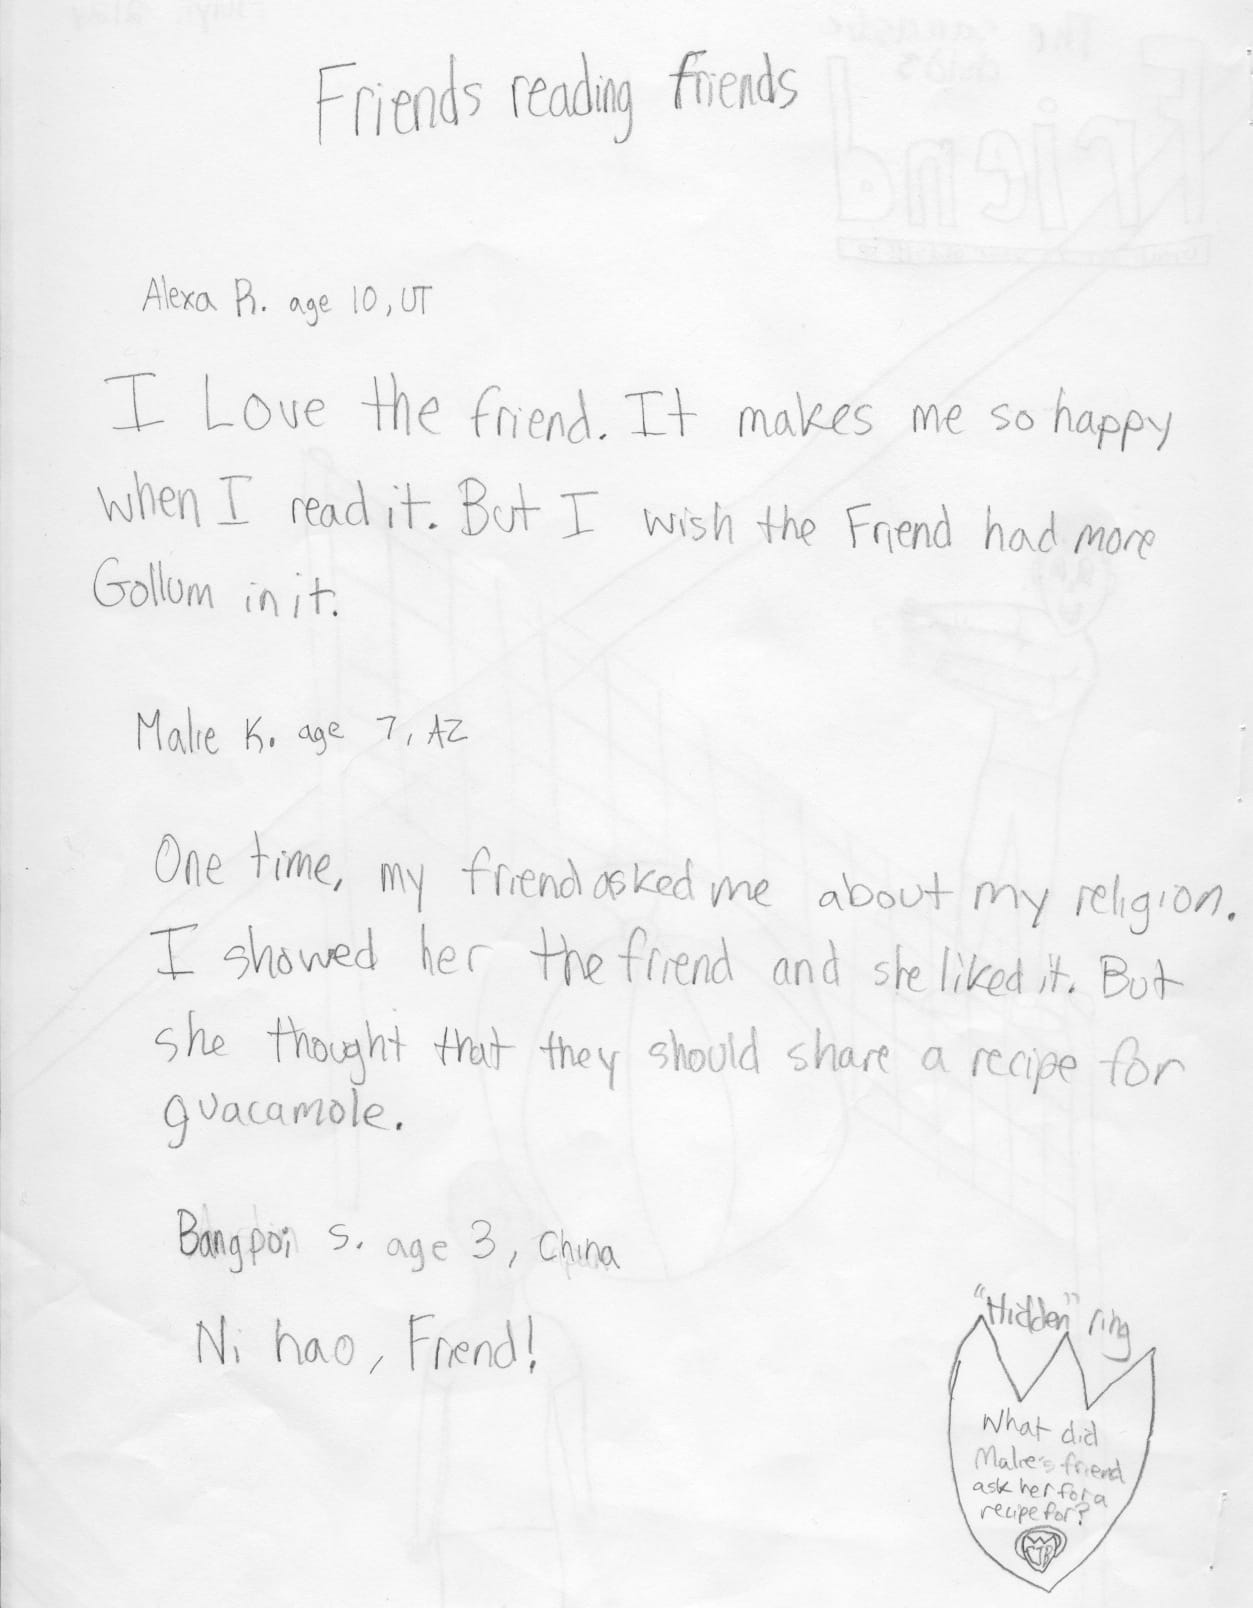 Friends reading friends
Alexa R. age 10, UT
I Love the friend. It makes me so happy
when I read it. But I wish the Friend had more
Gollum in it.
Malie K. age 7, AZ
One time, my friend asked me about my religion.
I showed her the friend and she liked it. But
she thought that they should share a recipe for
guacamole.
Bangpoi S. age 3, China
Ni hao, Friend!
"Hidden" ring
What did
Malie's friend
ask her for a
recipe for?
CTR